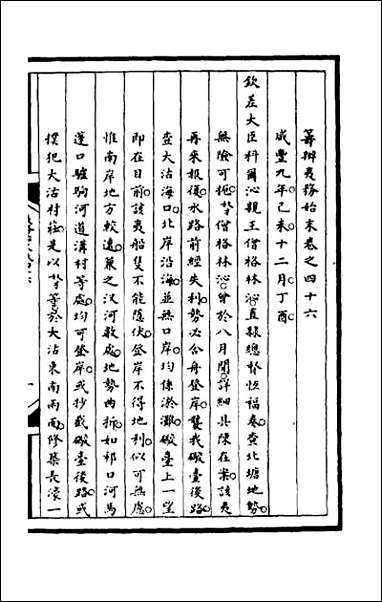 籌辦夷務始末卷之四十六
咸豐九年己未十二月丁酉
欽差大臣科爾沁親王僧格林沁直隸總督恆福奏查北塘地勢
無險可扼奴才僧格林沁曾於八月間詳細具陳在案該夷
再來報復水路前經失利勢必舍舟登岸襲我礮臺後路
查大沽海口北岸沿海並無口岸均係淤灘礮臺上一望
即在目前該夷船隻不能隱伏登岸不得地利似可無慮
惟南岸地方較遠兼之汊河數處地勢曲折如祁口河馬
蓬口驢駒河道溝村等處均可登岸或抄截礮臺後路或
撲犯大沽村莊是以奴才等於大沽東南兩面修築長濠一